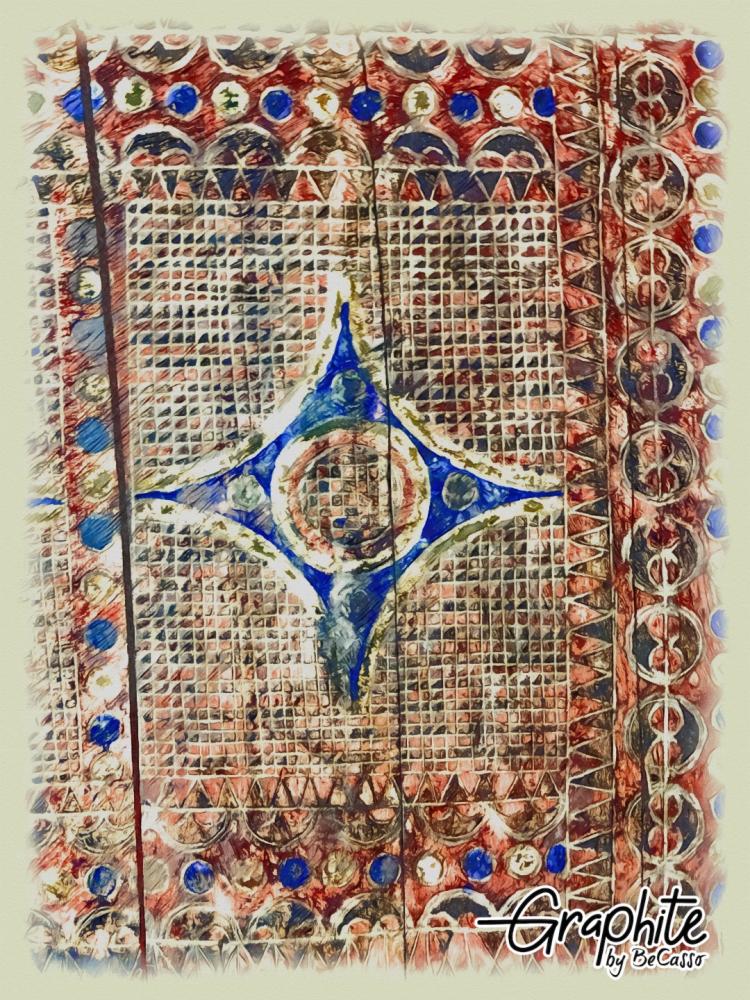 Graphite
by BeCasso